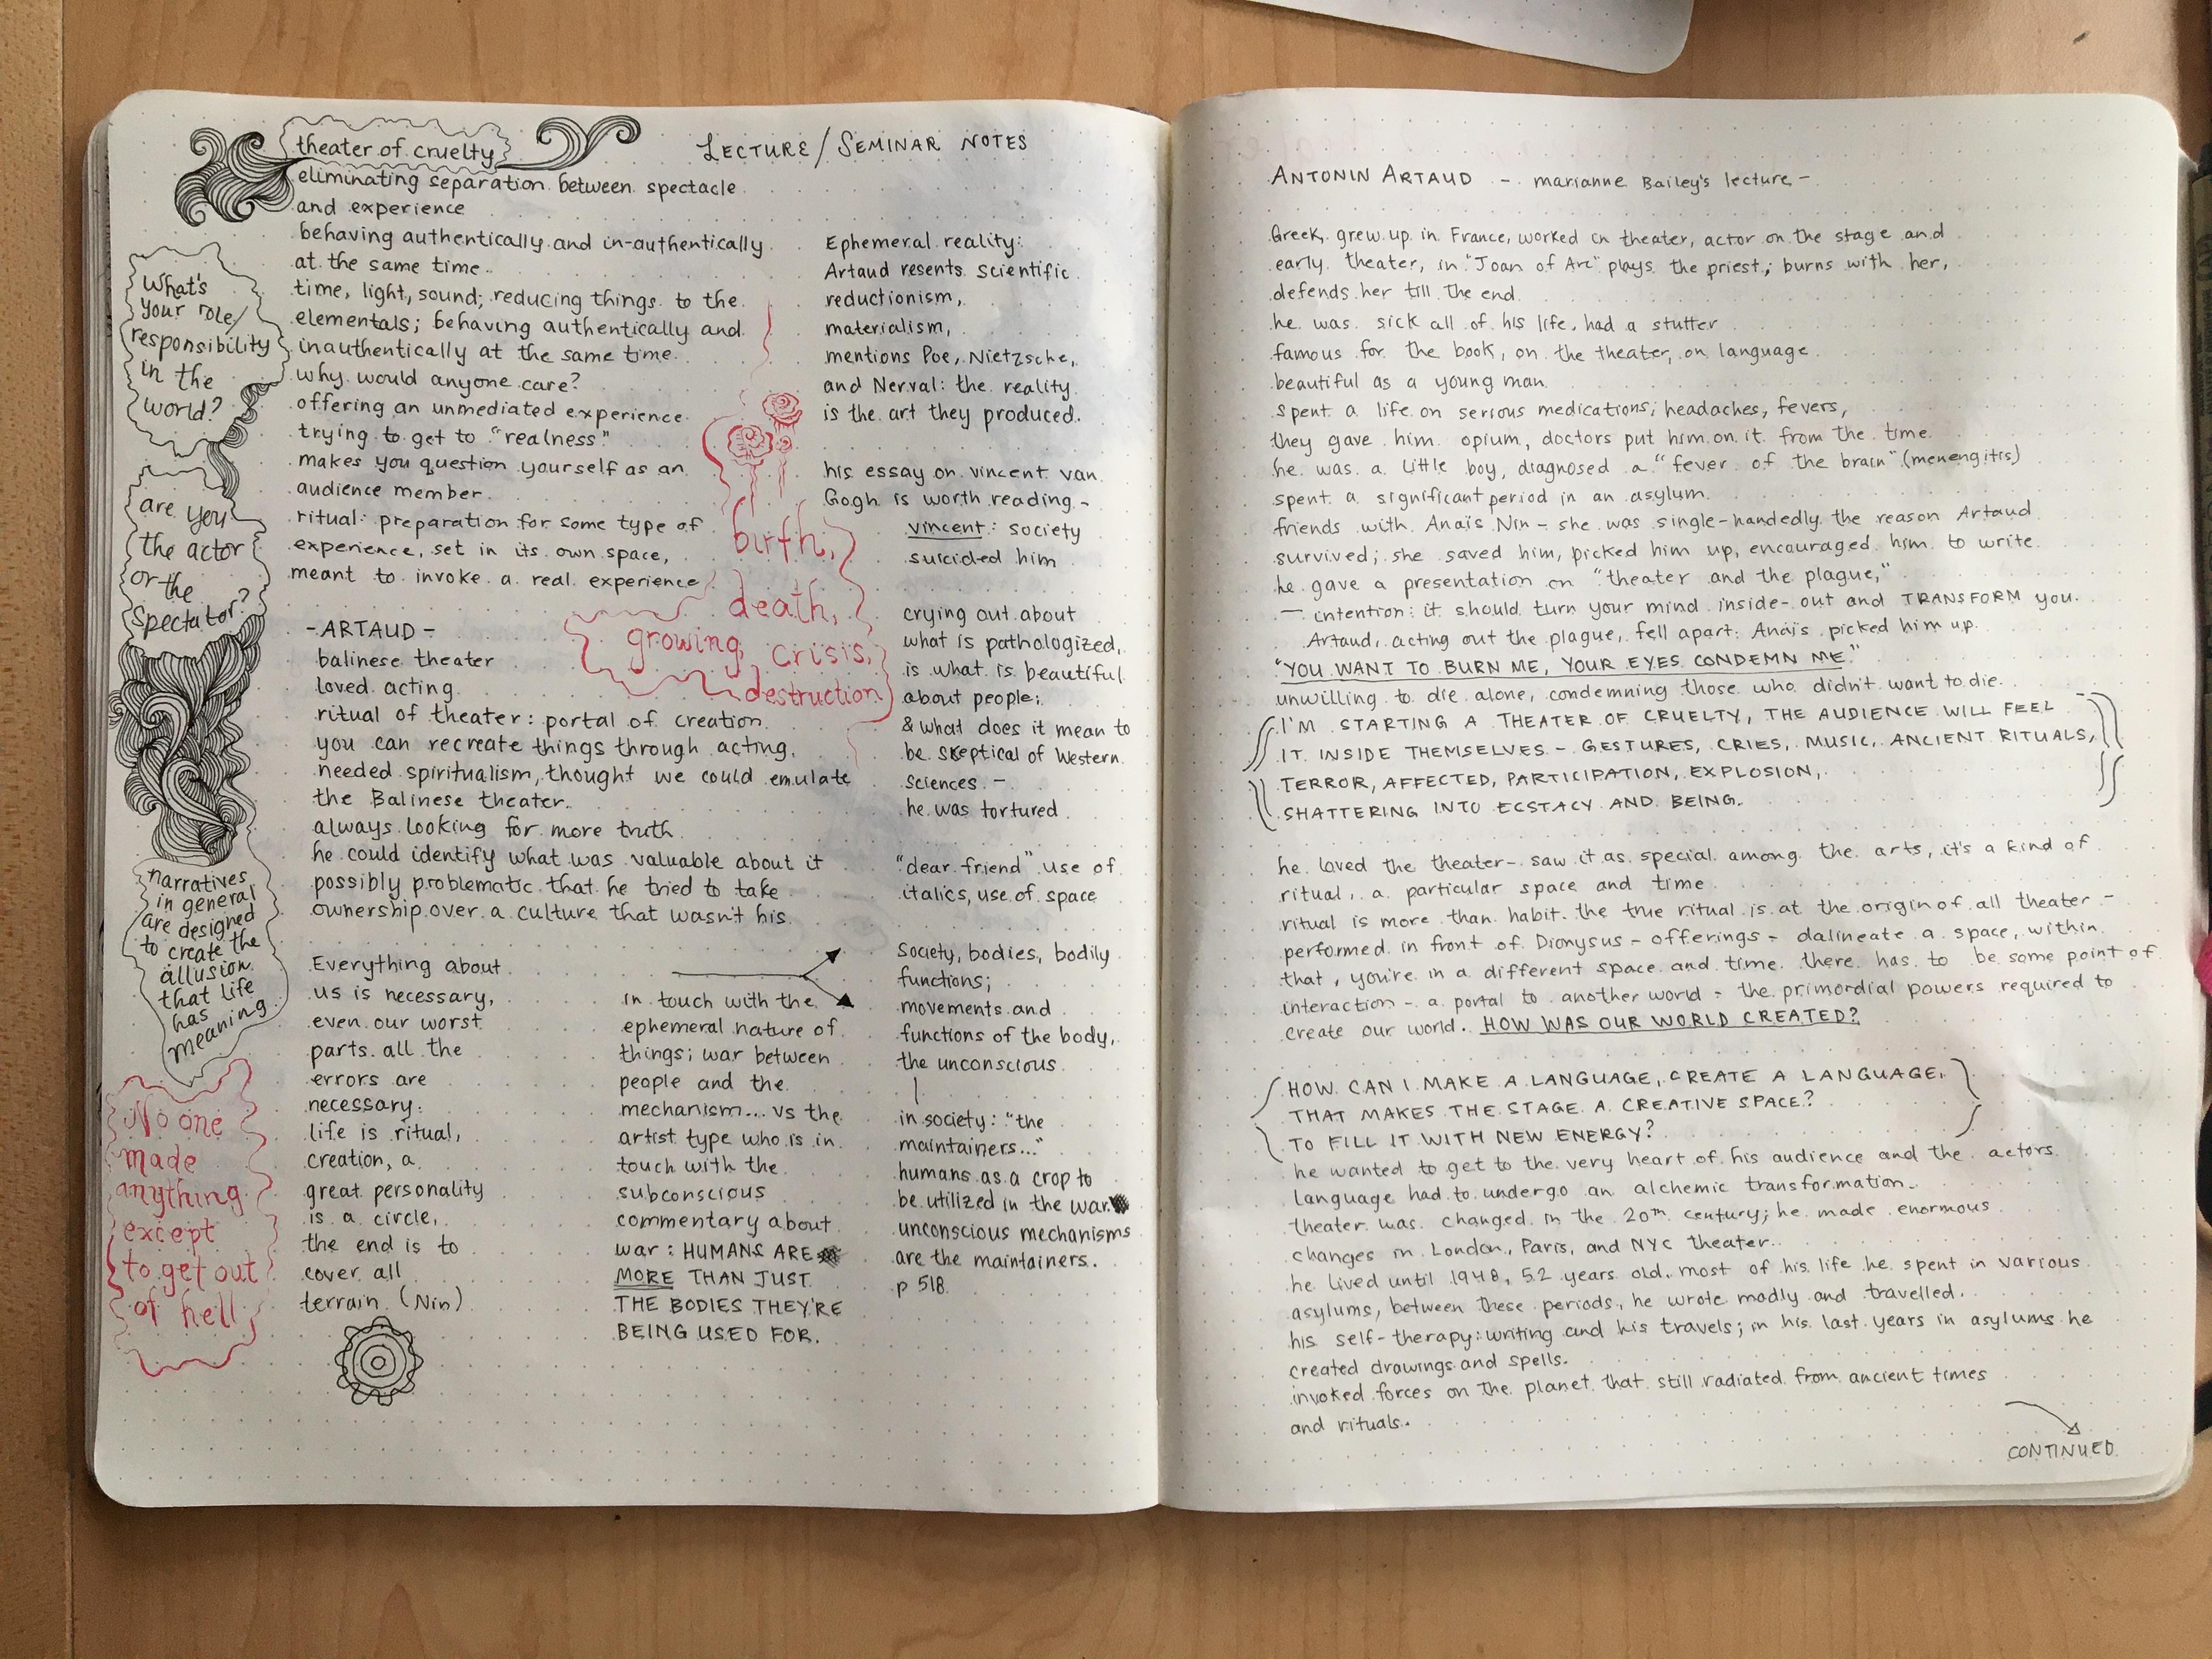 theater of cruelty
LECTURE/SEMINAR NOTES
eliminating separation between spectacle
and experience
behaving authentically and in-authentically
at the same time.
time, light, sound; reducing things to the
elementals; behaving authentically and
inauthentically at the same time.
why would anyone care?
offering an unmediated experience
trying to get to "realness"
makes you question yourself as an
audience member.
ritual: preparation for some type of
experience, set in its own space,
meant to invoke a real experience
What's
your role/
responsibility
in the
world?
are you
the actor
or the
spectator?
narratives
in general
are designed
to create the
allusion
that life
has
meaning.
No one
made
anything
except
to get out
of hell,
birth,
death,
growing, crisis,
destruction
-ARTAUD-
balinese theater
loved acting
ritual of theater: portal of creation.
you can recreate things through acting.
needed spiritualism, thought we could emulate
the Balinese theater.
always looking for more truth
he could identify what was valuable about it
possibly problematic that he tried to take
ownership over a culture that wasn't his.
Everything about
us is necessary,
even our worst
parts. all the
errors are
necessary.
life is ritual,
creation, a
great personality
is a circle,
the end is to
cover all
terrain. (Nin)
in touch with the
ephemeral nature of
things; war between
people and the
mechanism... vs the
artist type who is in
touch with the
subconscious
commentary about
war: HUMANS ARE
MORE THAN JUST
THE BODIES THEY'RE
BEING USED FOR.
Ephemeral reality:
Artaud resents scientific
reductionism,
materialism,
mentions Poe, Nietzsche,
and Nerval: the reality
is the art they produced.
his essay on vincent van
Gogh is worth reading -
vincent: society
suicided him
crying out about
what is pathologized,
is what is beautiful
about people;
& what does it mean to
be skeptical of Western
sciences -
he was tortured
"dear friend" use of
italics, use of space
Society, bodies, bodily
functions;
movements and
functions of the body,
the unconscious
in society: "the
maintainers..."
humans as a crop to
be utilized in the war
unconscious mechanisms
are the maintainers.
p 518.
ANTONIN ARTAUD - marianne Bailey's lecture -
Greek, grew up in France, worked in theater, actor on the stage and
early theater, in "Joan of Arc" plays the priest; burns with her,
defends her till the end.
he was sick all of his life, had a stutter
famous for the book, on the theater, on language
beautiful as a young man.
spent a life on serious medications; headaches, fevers,
they gave him opium, doctors put him on it from the time
he was a little boy, diagnosed a "fever of the brain" (menengitis)
spent a significant period in an asylum.
friends with Anaïs Nin - she was single-handedly the reason Artaud
survived; she saved him, picked him up, encouraged him to write.
he gave a presentation on "theater and the plague,"
— intention: it should turn your mind inside-out and TRANSFORM you.
Artaud, acting out the plague, fell apart. Anaïs picked him up.
"YOU WANT TO BURN ME, YOUR EYES CONDEMN ME."
unwilling to die alone, condemning those who didn't want to die.
I'M STARTING A THEATER OF CRUELTY, THE AUDIENCE WILL FEEL
IT INSIDE THEMSELVES - GESTURES, CRIES, MUSIC, ANCIENT RITUALS,
TERROR, AFFECTED, PARTICIPATION, EXPLOSION,
SHATTERING INTO ECSTACY AND BEING.
he loved the theater - saw it as special among the arts, it's a kind of
ritual, a particular space and time
ritual is more than habit. the true ritual is at the origin of all theater -
performed in front of Dionysus - offerings - dalineate a space, within
that, you're in a different space and time. there has to be some point of
interaction - a portal to another world - the primordial powers required to
create our world. HOW WAS OUR WORLD CREATED?
HOW CAN I MAKE A LANGUAGE, CREATE A LANGUAGE,
THAT MAKES THE STAGE A CREATIVE SPACE?
TO FILL IT WITH NEW ENERGY?
he wanted to get to the very heart of his audience and the actors.
language had to undergo an alchemic transformation.
theater was changed in the 20th century; he made enormous
changes in London, Paris, and NYC theater.
he lived until 1948, 52 years old. most of his life he spent in various
asylums, between these periods, he wrote madly and travelled.
his self-therapy: writing and his travels; in his last years in asylums he
created drawings and spells.
invoked forces on the planet that still radiated from ancient times
and rituals.
CONTINUED